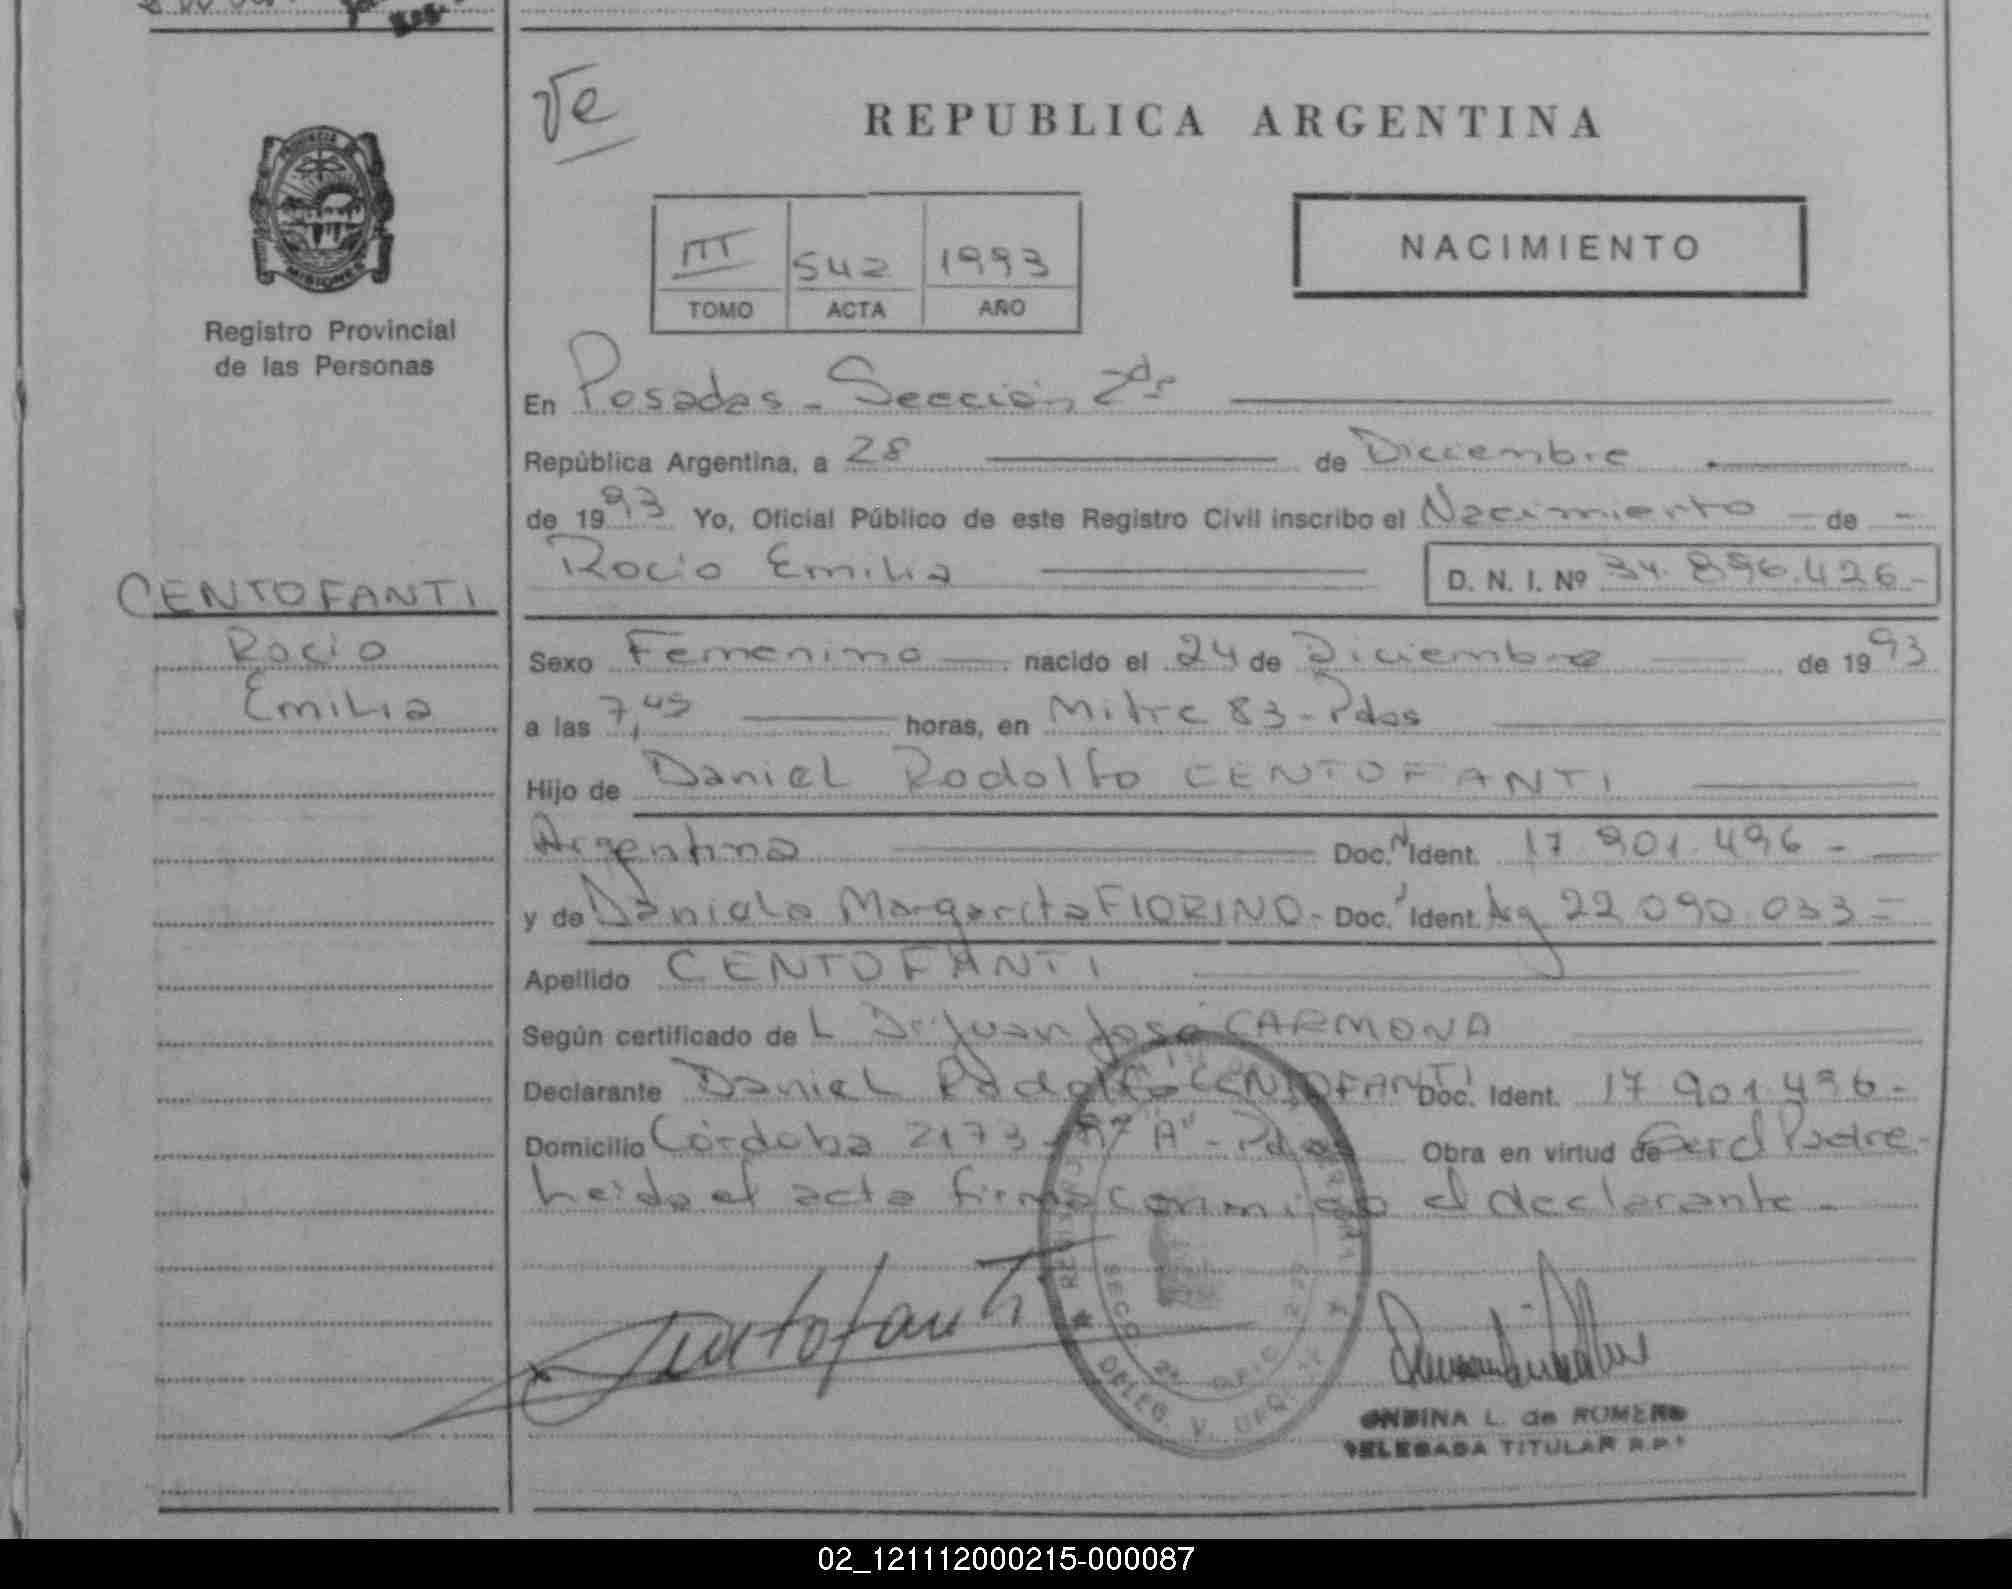 Ve
REPUBLICA ARGENTINA
PROVINCIA DE
MISIONES
Registro Provincial
de las Personas
III 542 1993
TOMO ACTA AÑO
NACIMIENTO
En Posadas - Sección 2da
República Argentina, a 28 de Diciembre
de 1993 Yo, Oficial Público de este Registro Civil inscribo el Nacimiento - de -
Rocio Emilia D. N. I. Nº 34.896.426.-
CENTOFANTI
Rocio
Emilia
Sexo Femenino nacido el 24 de Diciembre de 1993
a las 7,45 horas, en Mitre 83 - Pdas
Hijo de Daniel Rodolfo CENTOFANTI
Argentina Doc. Ident. 17.901.496 -
y de Daniela Margarita FIORINO - Doc. Ident. Arg 22.090.033 =
Apellido CENTOFANTI
Según certificado de L Dr. Juan José CARMONA
Declarante Daniel Rodolfo CENTOFANTI Doc. Ident. 17.901.496 -
Domicilio Córdoba 2173 - "A" - Pdas Obra en virtud de Ser el Padre -
Leida el acta firma conmigo el declarante -
Centofanti
SECC. 2ª OFIC.
DELEG.
ONDINA L. de ROMERO
DELEGADA TITULAR R.P.
02_121112000215-000087